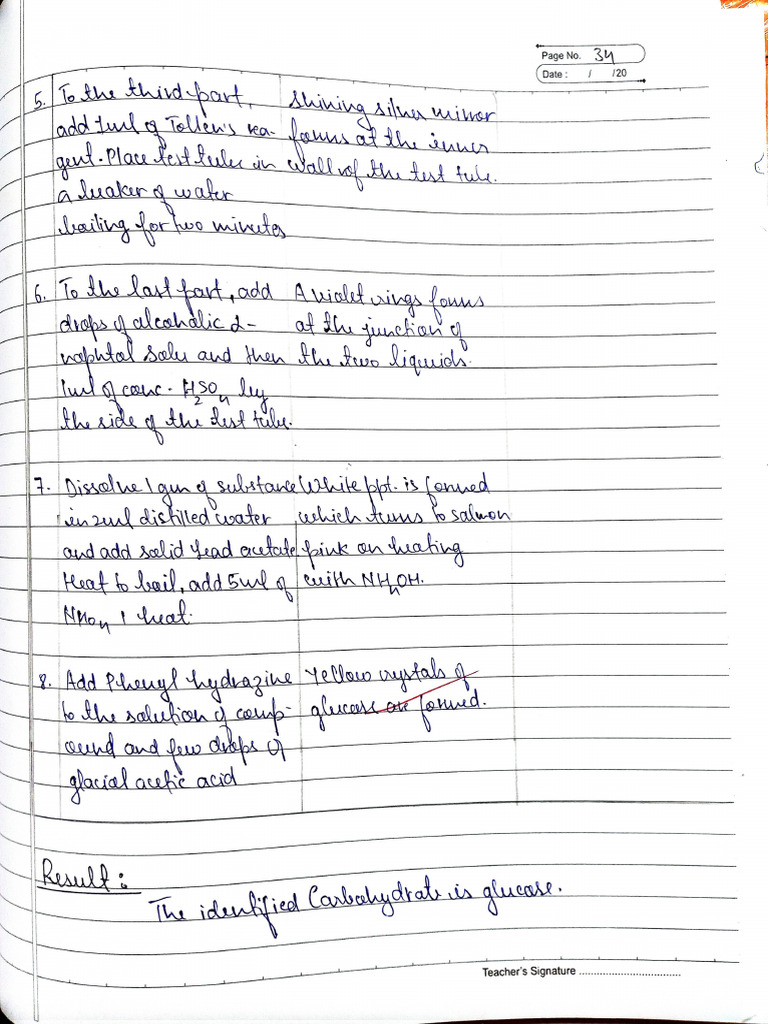 Page No. 34
Date : / /20
5. To the third part, shining silver mirror
add 1ml of Tollen's rea- forms at the inner
gent. Place test tube in wall of the test tube.
a beaker of water
boiling for two minutes
6. To the last part, add A violet rings forms
drops of alcoholic α- at the junction of
naphtal solu and then the two liquids.
1ml of conc. H2SO4 by
the side of the test tube.
7. Dissolve 1 gm of substance White ppt. is formed
in 2ml distilled water which turns to salmon
and add solid lead acetate pink on heating
Heat to boil, add 5ml of with NH4OH.
heat.
8. Add Phenyl hydrazine Yellow crystals of
to the solution of comp- glucose are formed.
ound and few drops of
glacial acetic acid
Result :
The identified Carbohydrate is glucose.
Teacher's Signature ..................................